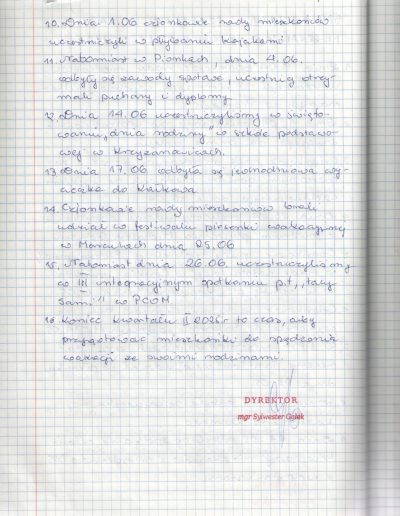 10. Dnia 1.06 członkowie rady mieszkańców
uczestniczyli w pływaniu kajakami
11. Natomiast w Pionkach, dnia 4.06.
odbyły się zawody sportowe, uczestnicy otrzy-
mali puchary i dyplomy.
12. Dnia 14.06 uczestniczyliśmy w święto-
waniu „dnia rodziny" w szkole podstawo-
wej w Krzyżanowicach.
13. Dnia 17.06 odbyła się jednodniowa wy-
cieczka do Krakowa
14. Członkowie rady mieszkańców brali
udział w festiwalu piosenki wakacyjnej
w dnia 25.06
15. Natomiast dnia 26.06. uczestniczyliśmy
w III integracyjnym spotkaniu p.t. „tacy
sami" w PCOM
16. Koniec kwartału II r to czas, aby
przygotować mieszkańki do spędzenia
wakacji ze swoimi rodzinami.
DYREKTOR
mgr Sylwester